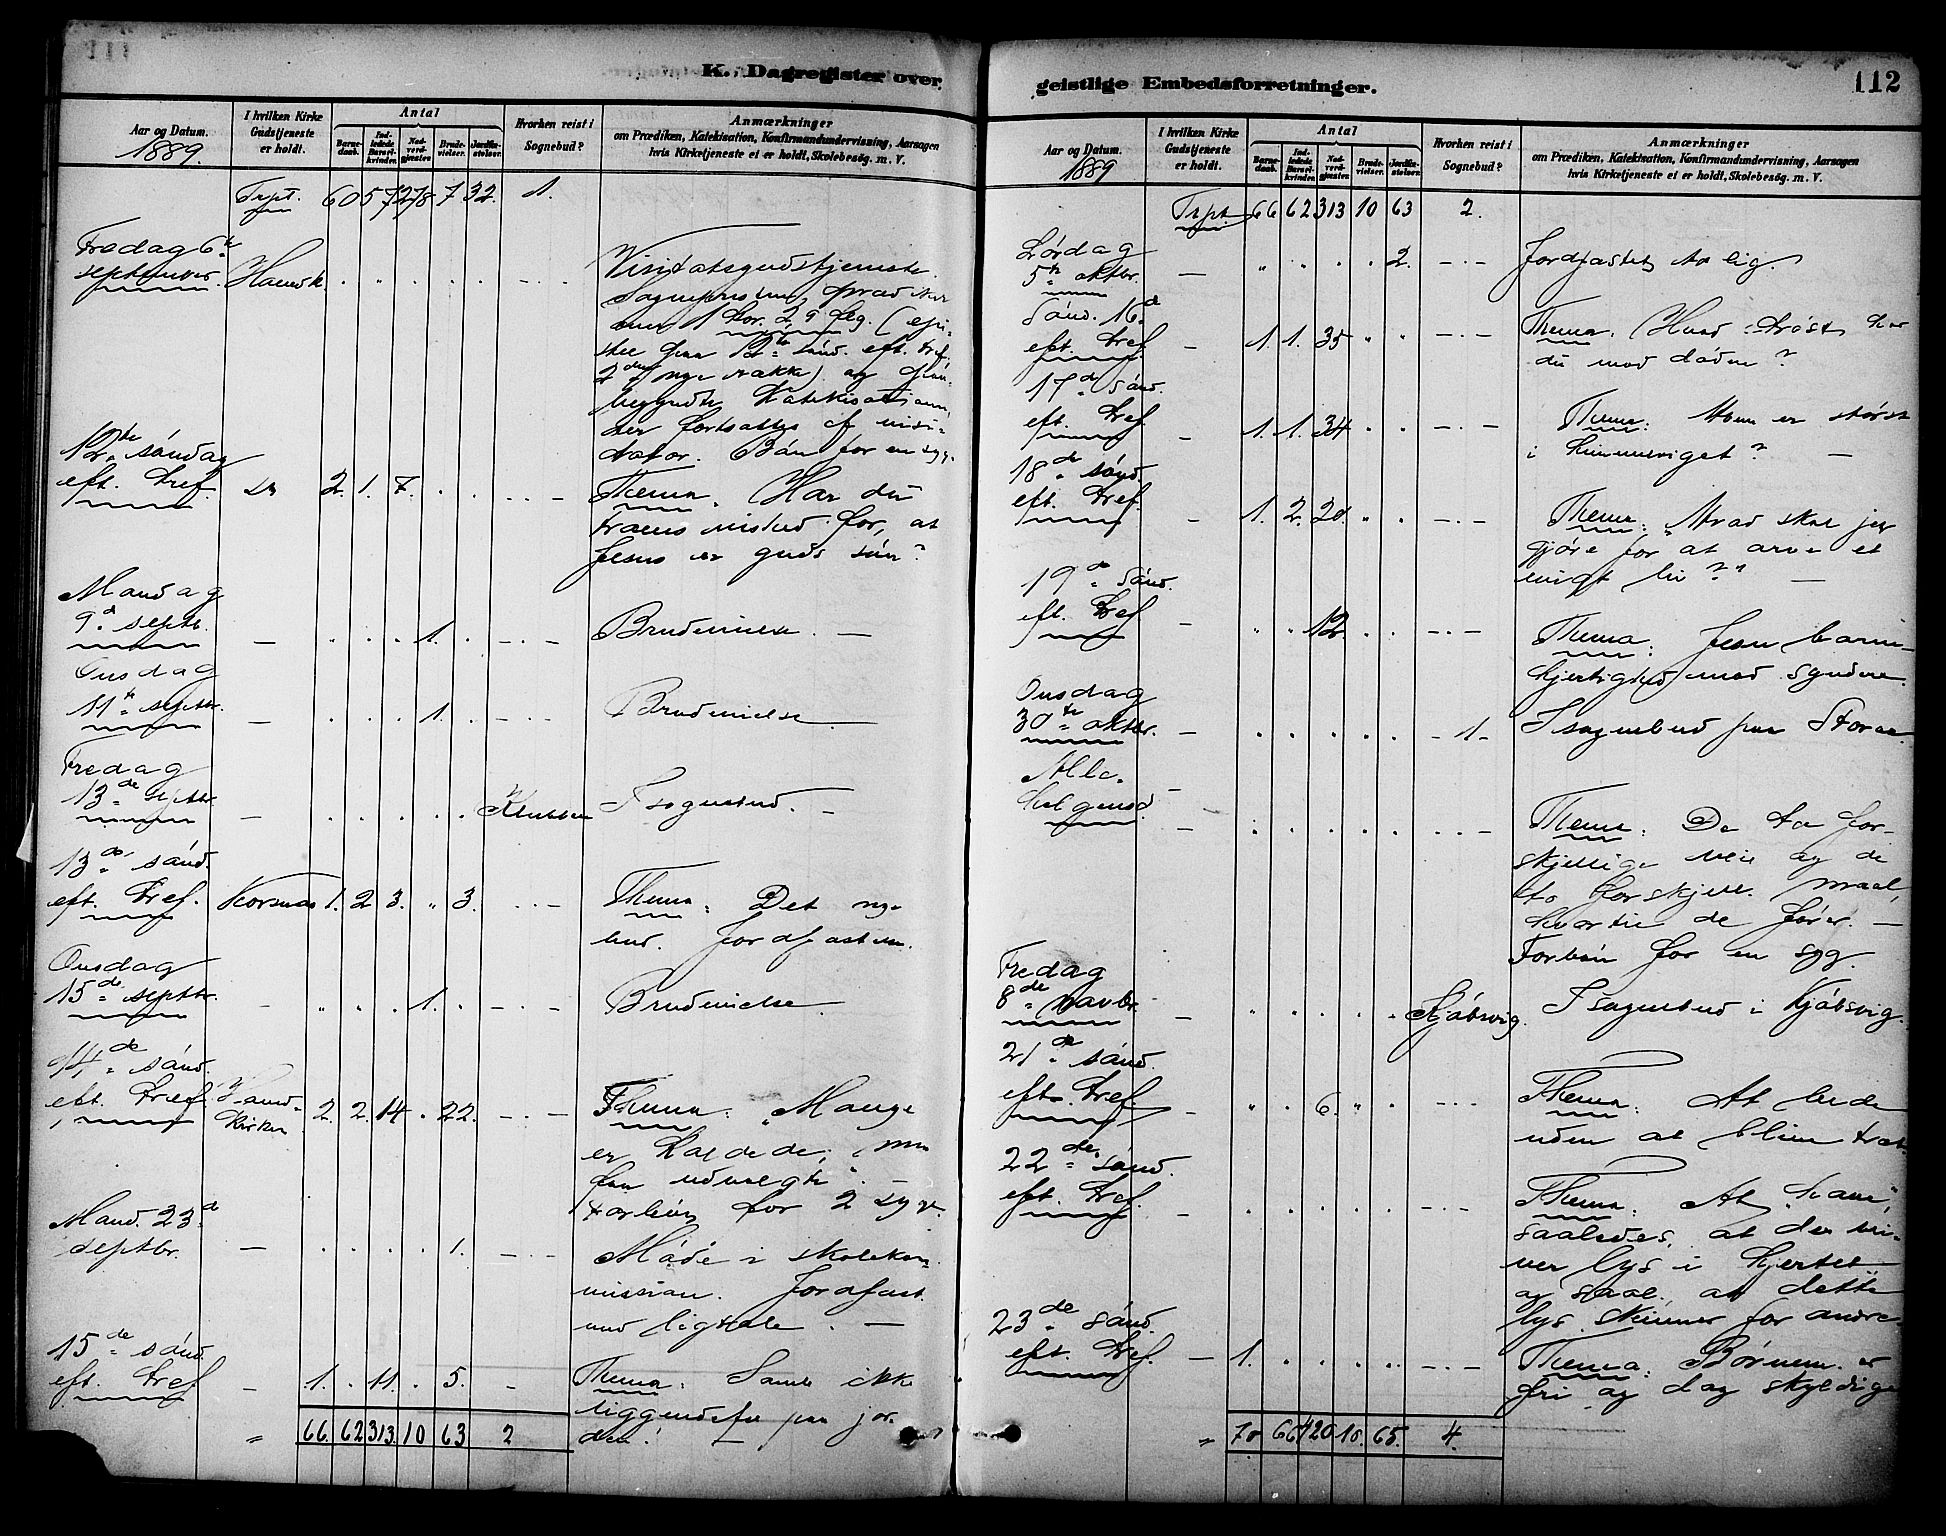 K. Dagregister over
Aar og Datum.
1889.
I hvilken Kirke
Gudstjeneste
er holdt.
Antal
Barne-
daab.
Ind-
ledede
Barsel-
kvinder.
Nad-
verd-
gjæster.
Brude-
vielser.
Jordfæ-
stelser.
Hvorhen reist i
Sognebud?
Anmærkninger
om Prædiken, Katekisation, Konfirmandundervisning, Aarsagen
hvis Kirketjeneste ei er holdt, Skolebesøg. m. V.
Trpt. 60 57 278 7 32. 1.
Fredag 6te
september. Hamsk Visitatsgudstjeneste.
Sognepresten prædiker
over 1 Cor. 2, 9 flg. (epi-
stel paa 12te sønd. eft. tref.
2den nye række) og
begyndte Katekisationen,
der fortsattes af visi-
tator. Bøn for en syg.
12te søndag
eft. tref. 2. 1. 7. Thema. Har du
frems vished for, at
Jesus er guds søn?
Mandag
9de septb. — 1. Brudevielse. —
Onsdag
11te septbr. — 1. Brudevielse.
Fredag
13de septbr. — Klubben I sognebud. —
13de sønd.
eft. tref. Korsnæs 1. 2. 3. 3. Thema: Det nye
bud. Jordfæstelse.
Onsdag
15de septbr. — 1. Brudevielse.
14de sønd.
eft. tref. Hamd-
kirken 2. 2. 14. 22. Thema: "Mange
er kaldede, men
faa udvalgte". —
Forbøn for 2 syge.
Mand. 23de
septbr. — 1. Møde i skolekom-
mission. Jordfæst.
med ligtale. —
15de sønd.
eft. tref. — 1. 11. 5. Thema: Samle ikke
liggendefæ paa jor-
den! —
" 66. 62 313. 10 63 2
geistlige Embedsforretninger.
112
Aar og Datum.
1889
I hvilken Kirke
Gudstjeneste
er holdt.
Antal
Barne-
daab.
Ind-
ledede
Barsel-
kvinder.
Nad-
verd-
gjæster.
Brude-
vielser.
Jordfæ-
stelser.
Hvorhen reist i
Sognebud?
Anmærkninger
om Prædiken, Katekisation, Konfirmandundervisning, Aarsagen
hvis Kirketjeneste ei er holdt, Skolebesøg. m. V.
Trpt. 66 62 313 10 63 2.
Lørdag
5te oktbr. — 2. Jordfæstet to lig.
Sønd. 16de
eft. tref. — 1. 1. 35 Thema. Hvad trøst har
du mod døden?
17de sønd.
eft. tref. — 1. 1. 34. Thema: Hvem er størst
i himmeriget? —
18de sønd.
eft. tref. — 1. 2. 20. Thema: "Hvad skal jeg
gjøre for at arve et
evigt liv?" —
19de sønd.
eft. tref. — 12. Thema: Jesu barm-
hjertighed mod syndere.
Onsdag
30te oktbr. — 1 — I sognebud paa Storaa.
Alle-
helgensd. — Thema: De to for-
skjellige veie og de
to forskjell. maal,
hvortil de fører. —
Forbøn for en syg.
Fredag
8de novbr. — Kjøbsvig. I sognebud i Kjøbsvig.
21de sønd.
eft. tref. — 6. Thema: At bede
uden at blive træt.
22de sønd.
eft. tref. — Thema: At "have",
saaledes, at der bli-
ver lys i hjertet
og sjæl. at dette
lys skinner for andre
23de sønd.
eft. tref. — 1. Thema: Børnene er
fri og dog skyldige
" 70 66 420 10. 65. 4.